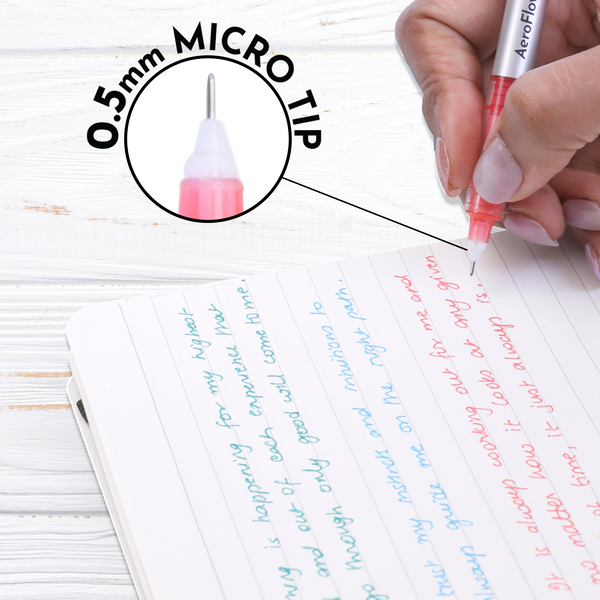 0.5mm MICRO TIP
AeroFlo
is happening for my highest
and out of each experience that
through only good will come to me.
trust my instincts and intuitions to
always guide me on the right path.
It is always working out for me and
no matter how it looks at any given
time, it just always is.